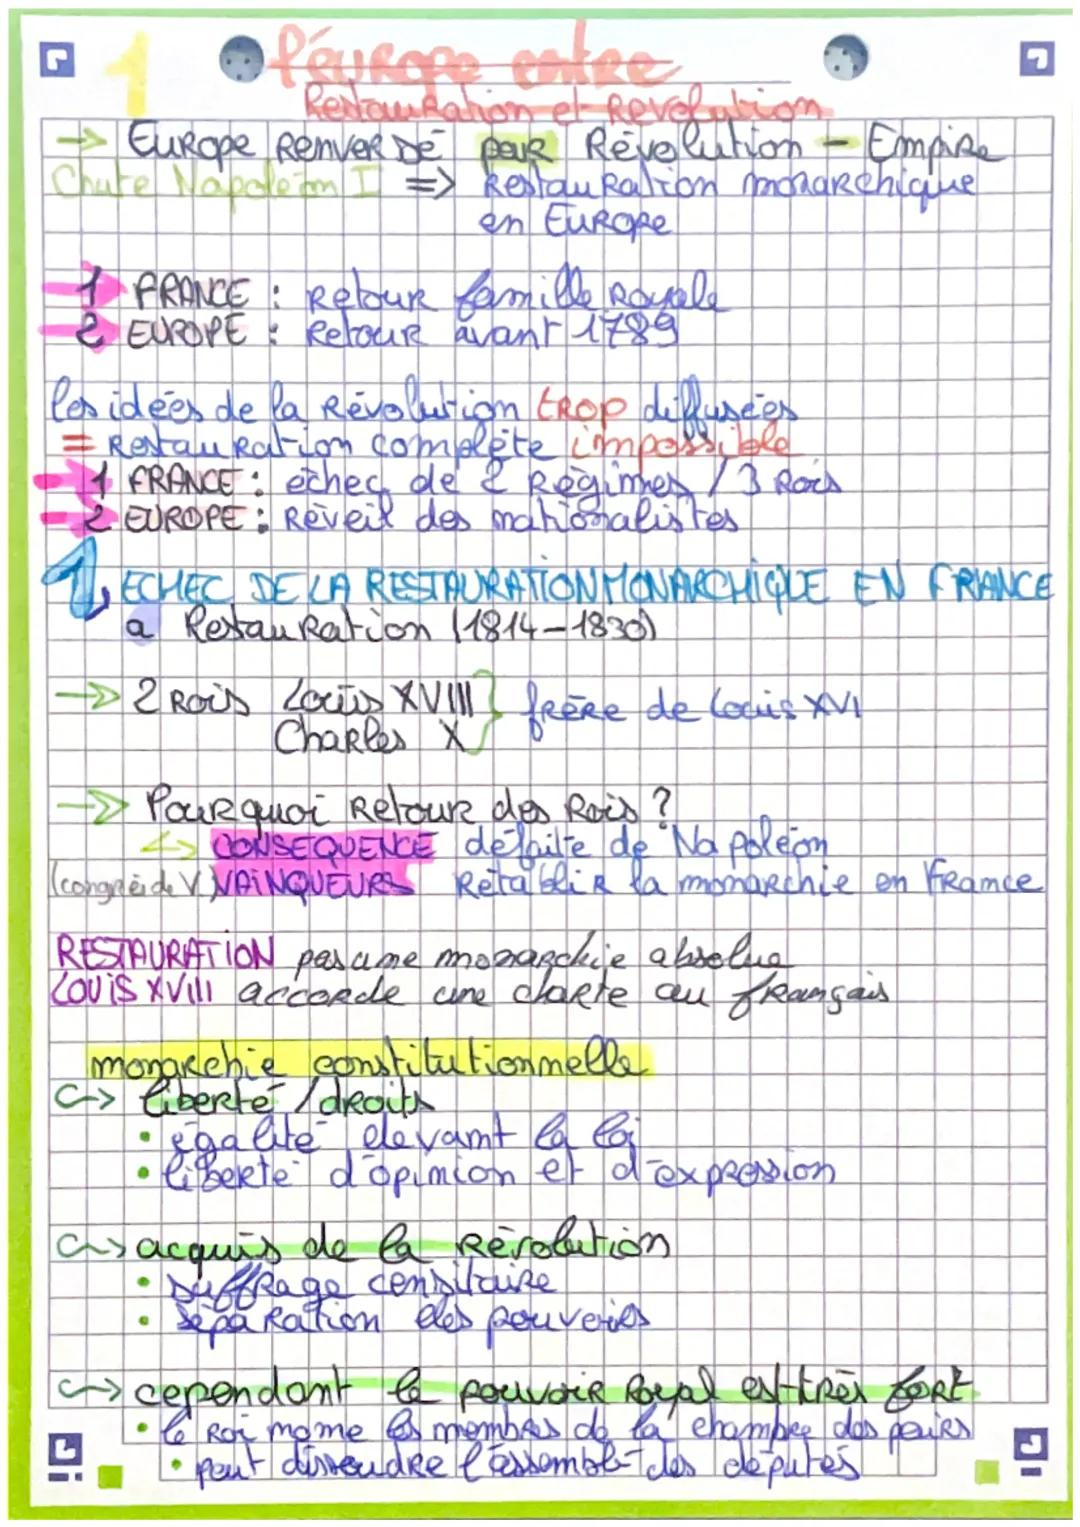 1 l'europe entre
Restauration et Revolution
→ Europe renverdé par Révolution - Empire
Chute Napoléon I => Restauration monarchique
en Europe
1 FRANCE : Retour famille Royale
2 EUROPE : Retour avant 1789
les idées de la Révolution trop diffusées
= Restauration complète impossible
1 FRANCE : échec de 2 Régimes / 3 Rois
2 EUROPE : Réveil des nationalistes
1, ECHEC DE LA RESTAURATION MONARCHIQUE EN FRANCE
a Restauration (1814-1830)
→ 2 Rois Louis XVIII } frère de Louis XVI
Charles X
→ Pourquoi Retour des Rois ?
↳ CONSEQUENCE défaite de Napoléon
(congrèi de V.) VAINQUEURS Rétablir la monarchie en France
RESTAURATION pas une monarchie absolue
LOUIS XVIII accorde une charte au français
monarchie constitutionnelle
↪ liberté / droits
• égalité devant la loi
• liberté d'opinion et d'expression
↪ acquis de la Révolution
• suffrage censitaire
• séparation des pouvoirs
↪ cependant le pouvoir Royal est très fort
• le Roi nome les membres de la chambre des pairs
• peut dissoudre l'assemblé des députés